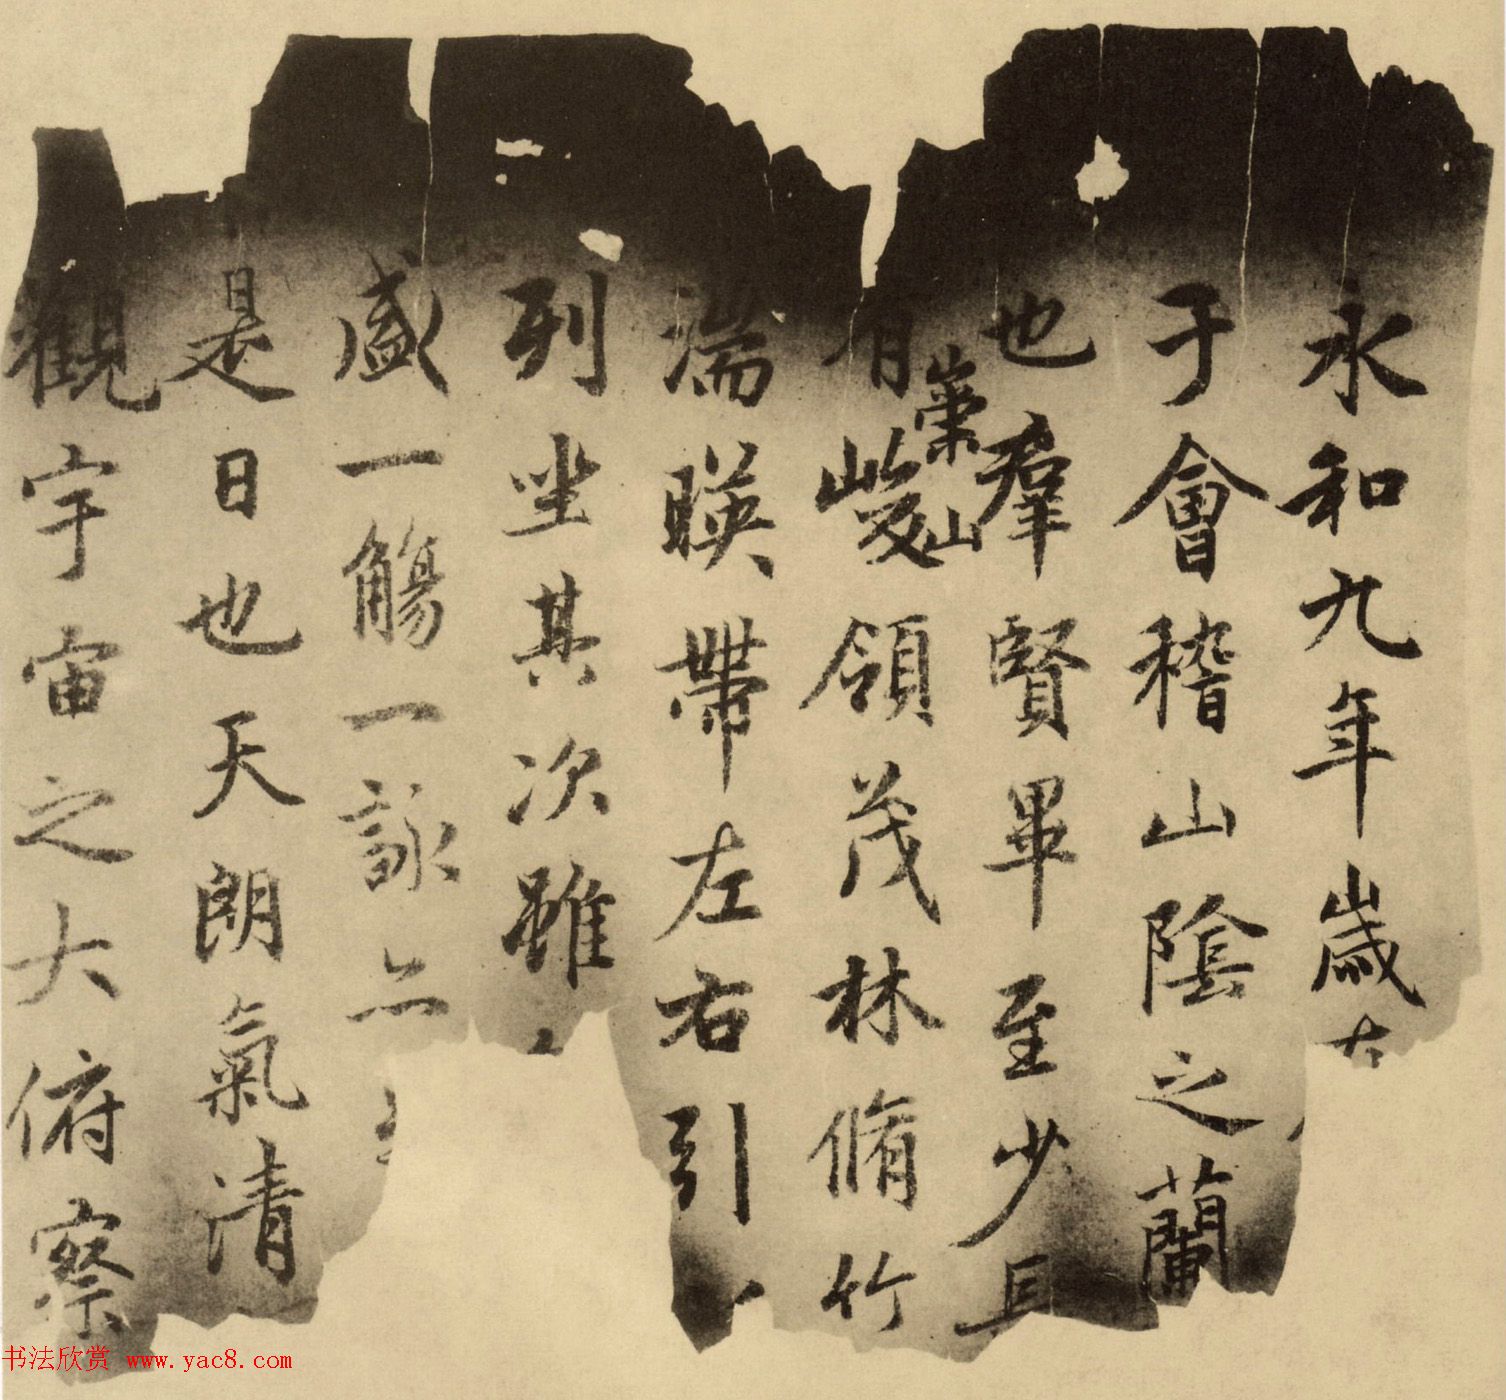 永和九年歲
于會稽山陰之蘭
也羣賢畢至少長
有崇山
峻領茂林脩竹
湍暎帶左右引
列坐其次雖
盛一觴一詠亦
是日也天朗氣清
觀宇宙之大俯察
书法欣赏 www.yac8.com